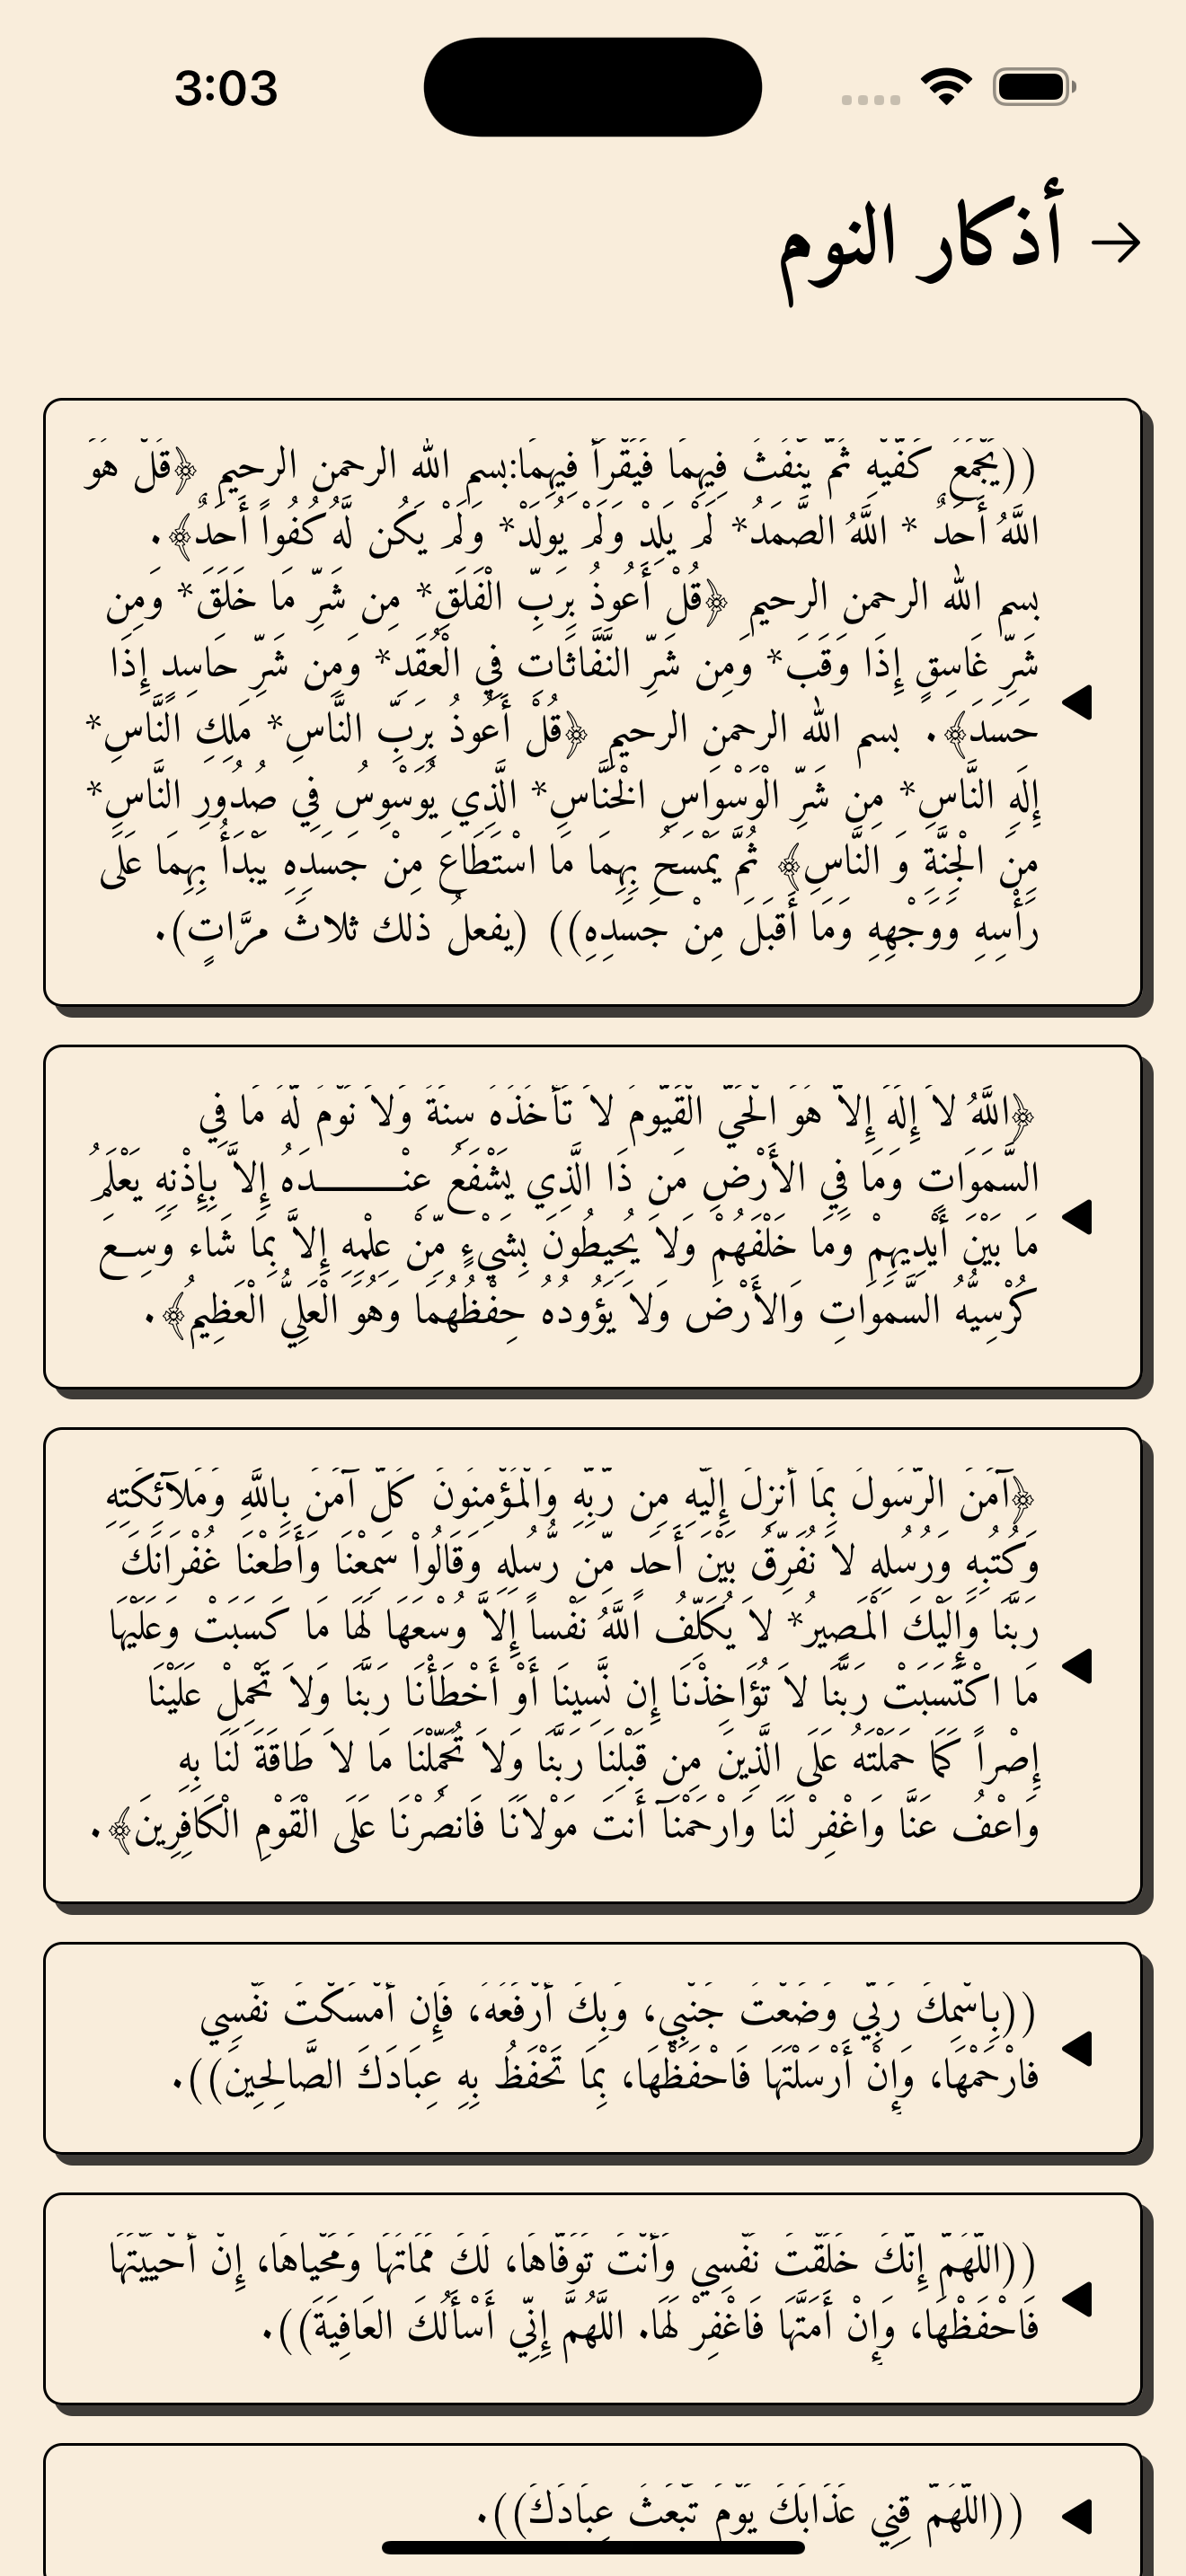 3:03
أذكار النوم
((يَجْمَعُ كَفَّيْهِ ثُمَّ يَنْفُثُ فِيهِمَا فَيَقْرَأُ فِيهِمَا:بسم الله الرحمن الرحيم ﴿قُلْ هُوَ
اللَّهُ أَحَدٌ * اللَّهُ الصَّمَدُ* لَمْ يَلِدْ وَلَمْ يُولَدْ* وَلَمْ يَكُن لَّهُ كُفُواً أَحَدٌ﴾.
بسم الله الرحمن الرحيم ﴿قُلْ أَعُوذُ بِرَبِّ الْفَلَقِ* مِن شَرِّ مَا خَلَقَ* وَمِن
شَرِّ غَاسِقٍ إِذَا وَقَبَ* وَمِن شَرِّ النَّفَّاثَاتِ فِي الْعُقَدِ* وَمِن شَرِّ حَاسِدٍ إِذَا
حَسَدَ﴾. بسم الله الرحمن الرحيم ﴿قُلْ أَعُوذُ بِرَبِّ النَّاسِ* مَلِكِ النَّاسِ*
إِلَهِ النَّاسِ* مِن شَرِّ الْوَسْوَاسِ الْخَنَّاسِ* الَّذِي يُوَسْوِسُ فِي صُدُورِ النَّاسِ*
مِنَ الْجِنَّةِ وَ النَّاسِ﴾ ثُمَّ يَمْسَحُ بِهِمَا مَا اسْتَطَاعَ مِنْ جَسَدِهِ يَبْدَأُ بِهِمَا عَلَى
رَأْسِهِ وَوَجْهِهِ وَمَا أَقبَلَ مِنْ جَسَدِهِ)) (يفعلُ ذلك ثلاثَ مرَّاتٍ).
﴿اللَّهُ لاَ إِلَهَ إِلاَّ هُوَ الْحَيُّ الْقَيُّومُ لاَ تَأْخُذُهُ سِنَةٌ وَلاَ نَوْمٌ لَّهُ مَا فِي
السَّمَوَاتِ وَمَا فِي الأَرْضِ مَن ذَا الَّذِي يَشْفَعُ عِنْـــــــدَهُ إِلاَّ بِإِذْنِهِ يَعْلَمُ
مَا بَيْنَ أَيْدِيهِمْ وَمَا خَلْفَهُمْ وَلاَ يُحِيطُونَ بِشَيْءٍ مِّنْ عِلْمِهِ إِلاَّ بِمَا شَاء وَسِـعَ
كُرْسِيُّهُ السَّمَوَاتِ وَالأَرْضَ وَلاَ يَؤُودُهُ حِفْظُهُمَا وَهُوَ الْعَلِيُّ الْعَظِيمُ﴾.
﴿آمَنَ الرَّسُولُ بِمَا أُنزِلَ إِلَيْهِ مِن رَّبِّهِ وَالْمُؤْمِنُونَ كُلٌّ آمَنَ بِاللَّهِ وَمَلآئِكَتِهِ
وَكُتُبِهِ وَرُسُلِهِ لاَ نُفَرِّقُ بَيْنَ أَحَدٍ مِّن رُّسُلِهِ وَقَالُواْ سَمِعْنَا وَأَطَعْنَا غُفْرَانَكَ
رَبَّنَا وَإِلَيْكَ الْمَصِيرُ* لاَ يُكَلِّفُ اللَّهُ نَفْساً إِلاَّ وُسْعَهَا لَهَا مَا كَسَبَتْ وَعَلَيْهَا
مَا اكْتَسَبَتْ رَبَّنَا لاَ تُؤَاخِذْنَا إِن نَّسِينَا أَوْ أَخْطَأْنَا رَبَّنَا وَلاَ تَحْمِلْ عَلَيْنَا
إِصْراً كَمَا حَمَلْتَهُ عَلَى الَّذِينَ مِن قَبْلِنَا رَبَّنَا وَلاَ تُحَمِّلْنَا مَا لاَ طَاقَةَ لَنَا بِهِ
وَاعْفُ عَنَّا وَاغْفِرْ لَنَا وَارْحَمْنَآ أَنتَ مَوْلاَنَا فَانصُرْنَا عَلَى الْقَوْمِ الْكَافِرِينَ﴾.
((بِاسْمِكَ رَبِّي وَضَعْتُ جَنْبِي، وَبِكَ أَرْفَعُهُ، فَإِن أَمْسَكْتَ نَفْسِي
فارْحَمْهَا، وَإِنْ أَرْسَلْتَهَا فَاحْفَظْهَا، بِمَا تَحْفَظُ بِهِ عِبَادَكَ الصَّالِحِينَ)).
((اللَّهُمَّ إِنَّكَ خَلَقْتَ نَفْسِي وَأَنْتَ تَوَفَّاهَا، لَكَ مَمَاتُهَا وَمَحْياهَا، إِنْ أَحْيَيْتَهَا
فَاحْفَظْهَا، وَإِنْ أَمَتَّهَا فَاغْفِرْ لَهَا. اللَّهُمَّ إِنِّي أَسْأَلُكَ العَافِيَةَ)).
((اللَّهُمَّ قِنِي عَذَابَكَ يَوْمَ تَبْعَثُ عِبَادَكَ)).